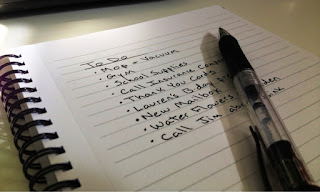 To Do
• Mop + Vacuum
• Gym
• School Supplies
• Call Insurance
• Thank You Cards
• Lauren's B.day
• New Mailbox
• Water Flowers
• Call Jim